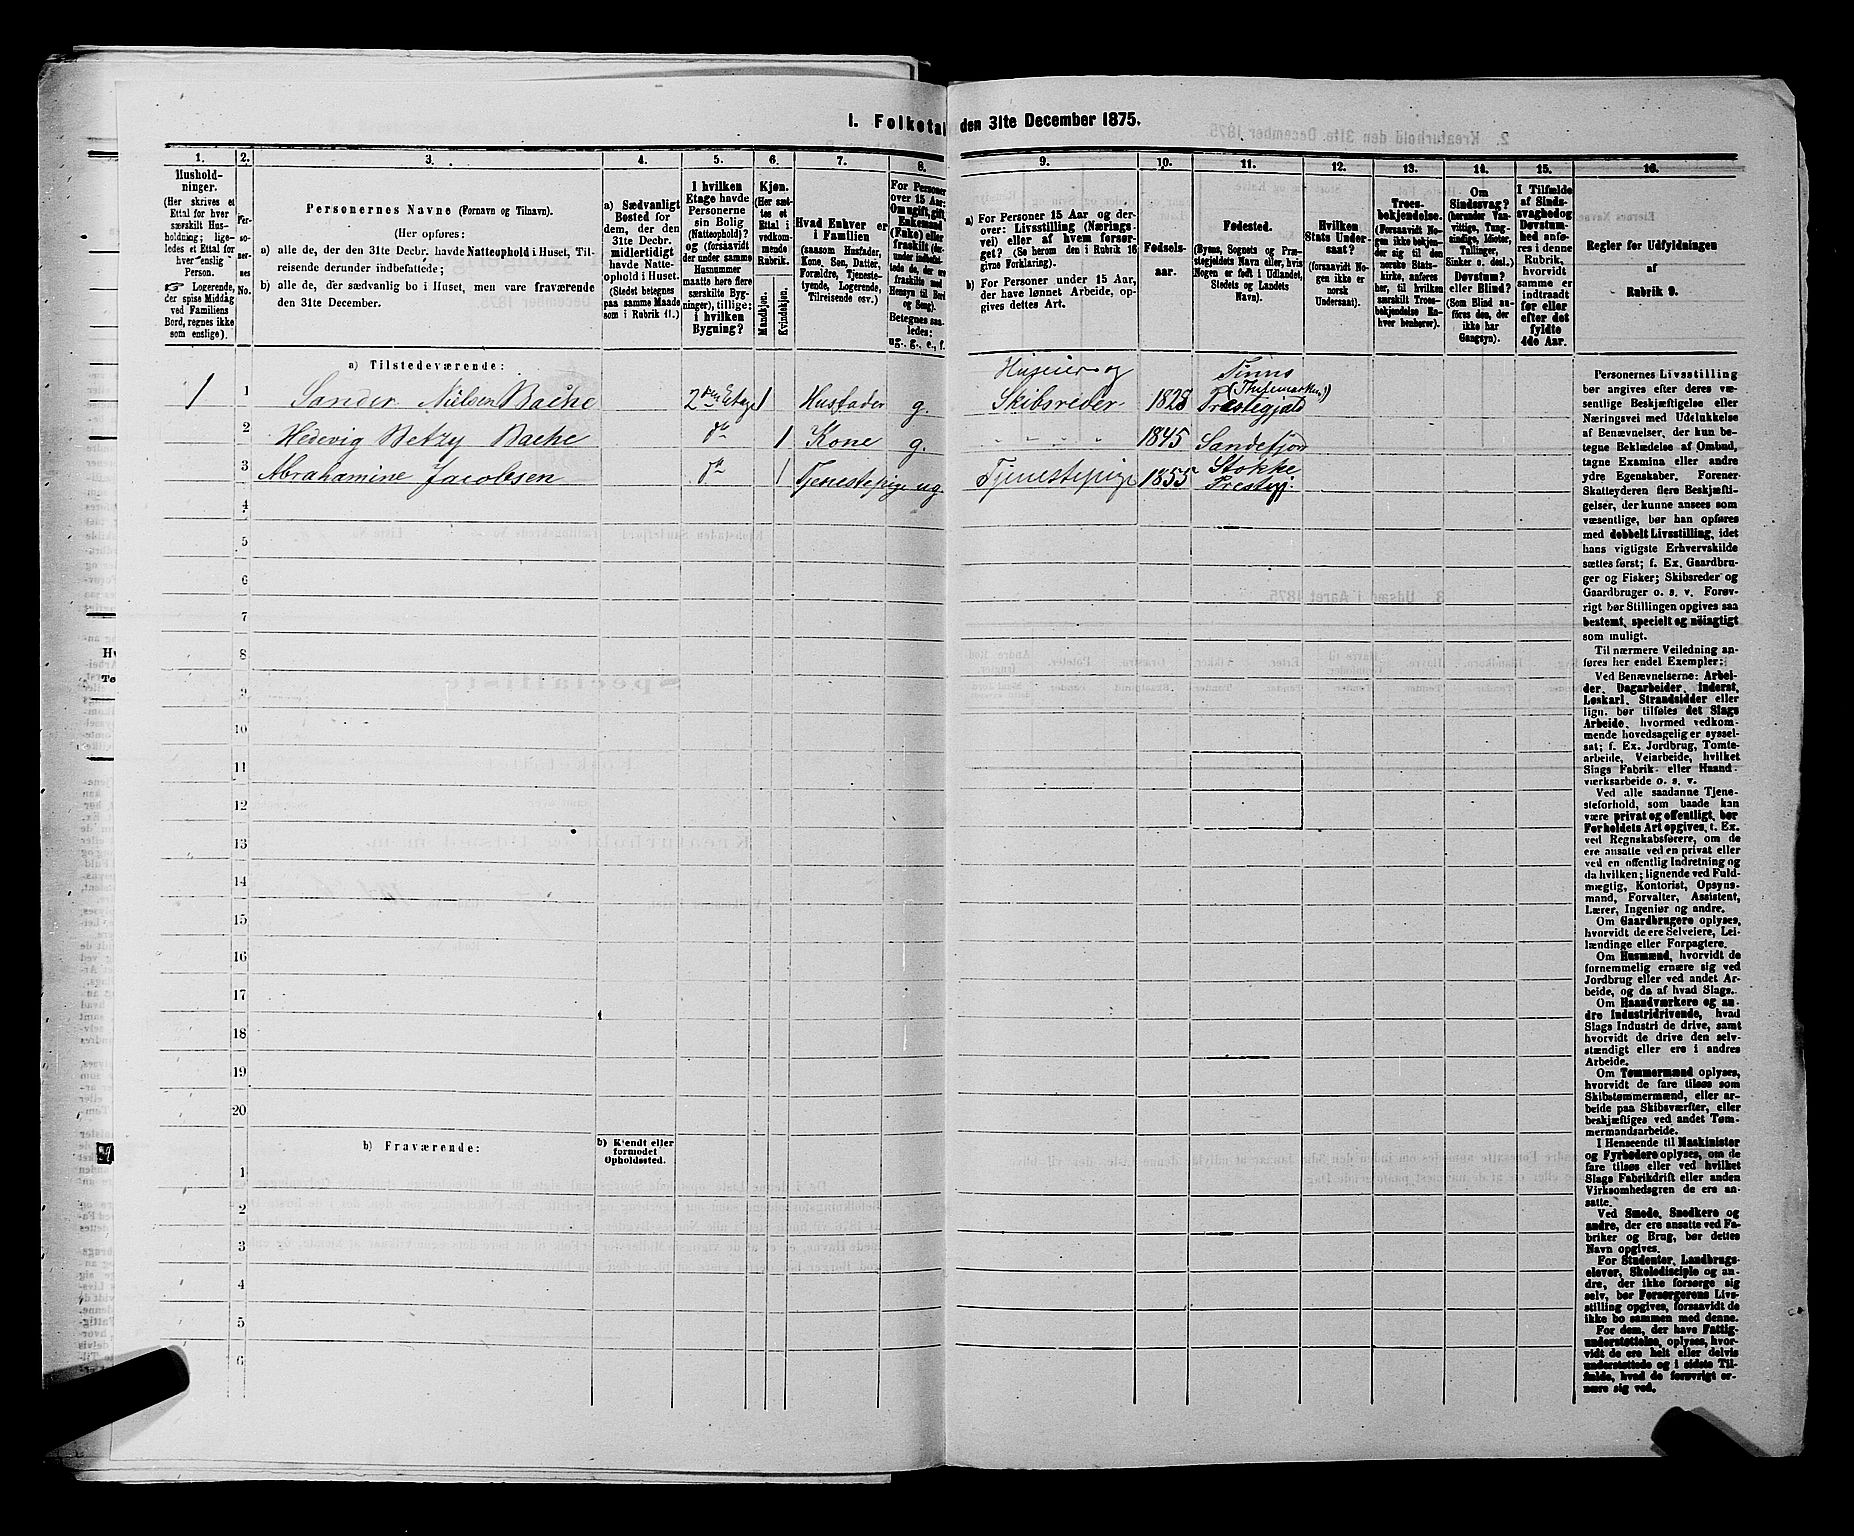 1. Folketal den 31te December 1875.
1. 2. 3. 4. 5. 6. 7. 8. 9. 10. 11. 12. 13. 14. 15. 16.
Hushold-
ninger.
(Her skrives et
Ettal for hver
særskilt Hus-
holdning; lige-
ledes et Ettal for
hver enslig
Person.
☞ Logerende,
der spise Middag
ved Familiens
Bord, regnes ikke
som enslige).
Per-
so-
ner-
nes
No.
Personernes Navne (Fornavn og Tilnavn).
(Her opføres:
a) alle de, der den 31te Decbr. havde Natteophold i Huset, Til-
reisende derunder indbefattede;
b) alle de, der sædvanlig bo i Huset, men vare fraværende
den 31te December.
a) Sædvanligt
Bosted for
dem, der den
31te Decbr.
midlertidigt
havde Natte-
ophold i Huset.
(Stedet betegnes
paa samme Maade
som i Rubrik 11.)
I hvilken
Etage havde
Personerne
sin Bolig
(Natteophold)?
og (forsaavidt
der under samme
Husnummer
maatte høre flere
særskilte Byg-
ninger), tillige:
i hvilken
Bygning?
Kjøn.
(Her sæt-
tes et
Ettal i
vedkom-
mende
Rubrik.
Mandkjøn.
Kvindekjøn.
Hvad Enhver er
i Familien
(saasom Husfader,
Kone, Søn, Datter,
Forældre, Tjeneste-
tyende, Logerende,
Tilreisende osv.)
For Personer
over 15 Aar:
Om ugift, gift,
Enkemand
(Enke) eller
fraskilt (der-
under indbefat-
tede de, der ere
fraskilte med
Hensyn til Bord
og Seng).
Betegnes saa-
ledes:
ug., g., e., f.
a) For Personer 15 Aar og der-
over: Livsstilling (Nærings-
vei) eller af hvem forsør-
get? (Se herom den i Rubrik 16
givne Forklaring).
b) For Personer under 15 Aar,
der have lønnet Arbeide, op-
gives dettes Art.
Fødsels-
aar.
Fødested.
(Byens, Sognets og Præ-
stegjeldets Navn eller, hvis
Nogen er født i Udlandet,
Stedets og Landets
Navn).
Hvilken
Stats Under-
saat?
(forsaavidt No-
gen ikke er
norsk
Undersaat).
Troes-
bekjendelse.
(Forsaavidt No-
gen ikke bekjen-
der sig til den
norske Stats-
kirke, anføres
her, til hvilken
særskilt Troes-
bekjendelse En-
hver henhører).
Om
Sindssvag?
(herunder Van-
vittige, Tung-
sindige, Idioter,
Tullinger,
Sinker o. desl.).
Døvstum?
eller Blind?
(Som Blind an-
føres den, der
ikke har
Gangsyn).
I Tilfælde
af Sinds-
svaghed og
Døvstum-
hed anfø-
res i denne
Rubrik,
hvorvidt
samme er
indtraadt
før eller
efter det
fyldte
4de Aar.
Regler for Udfyldningen
af
Rubrik 9.
a) Tilstedeværende:
1 1 Sander Nilsen Bache 2den Etage 1 Husfader g. Huseier og Skibsreder 1828 Tinns (Thelemarken) Prestegjæld
2 Hedevig Betzy Bache do 1 Kone g. " " " " 1845 Sandefjord
3 Abrahamine Jacobsen do 1 Tjenestepige ug. Tjenestepige 1855 Stokke Prestegj.
4
5
6
7
8
9
10
11
12
13
14
15
16
17
18
19
20
b) Fraværende:
b) Kjendt eller
formodet
Opholdssted.
1
2
3
4
5
6
Personernes Livsstilling
bør angives efter deres væ-
sentlige Beskjæftigelse eller
Næringsvei med Udelukkelse
af Benævnelser, der kun be-
tegne Beklædelse af Ombud,
tagne Examina eller andre
ydre Egenskaber. Forener
Skatteyderen flere Beskjæfti-
gelser, der kunne ansees som
væsentlige, bør han opføres
med dobbelt Livsstilling, idet
hans vigtigste Erhvervskilde
sættes først; f. Ex. Gaardbru-
ger og Fisker; Skibsreder og
Gaardbruger o. s. v. Forøv-
rigt bør Stillingen opgives saa
bestemt, specielt og nöiagtigt
som muligt.
Til nærmere Veiledning an-
føres her endel Exempler:
Ved Benævnelserne: Arbei-
der, Dagarbeider, Inderst,
Løskarl, Strandsidder eller
lign. bør tilføies det Slags
Arbeide, hvormed vedkom-
mende hovedsagelig er syssel-
sat; f. Ex. Jordbrug, Tomte-
arbeide, Veiarbeide, hvilket
Slags Fabrik- eller Haand-
værksarbeide o. s. v.
Ved alle saadanne Tjene-
steforhold, som baade kan
være privat og offentligt, bør
Forholdets Art opgives, t. Ex.
ved Regnskabsførere, om de
ere ansatte ved en privat eller
ved en offentlig Indretning og
da hvilken; lignende ved Fuld-
mægtig, Kontorist, Opsyns-
mand, Forvalter, Assistent,
Lærer, Ingeniør og andre.
Om Gaardbrugere oplyses,
hvorvidt de ere Selveiere, Lei-
lændinge eller Forpagtere.
Om Husmænd, hvorvidt de
fornemmelig ernære sig ved
Jordbrug eller ved andet Ar-
beide, og da af hvad Slags.
Om Haandværkere og an-
dre Industridrivende, hvad
Slags Industri de drive, samt
hvorvidt de drive den selv-
stændigt eller ere i andres
Arbeide.
Om Tømmermænd oplyses,
hvorvidt de fare tilsøs som
Skibstømmermænd, eller ar-
beide paa Skibsværfter, eller
beskjæftiges ved andet Tøm-
mermandsarbeide.
I Henseende til Maskinister
og Fyrbødere oplyses, om de
fare tilsøs eller ved hvilket
Slags Fabrikdrift eller anden
Virksomhedsgren de ere an-
satte.
Ved Smede, Snedkere og
andre, der ere ansatte ved Fa-
briker og Brug, bør dettes
Navn opgives.
For Studenter, Landbrugs-
elever, Skoledisciple og an-
dre, der ikke forsørge sig
selv, bør Forsørgerens Livs-
stilling opgives, forsaavidt de
ikke bo sammen med denne.
For dem, der have Fattig-
understøttelse, oplyses, hvor-
vidt de ere helt eller delvis
understøttede og i sidste Til-
fælde, hvad de forøvrigt er-
nære sig ved.